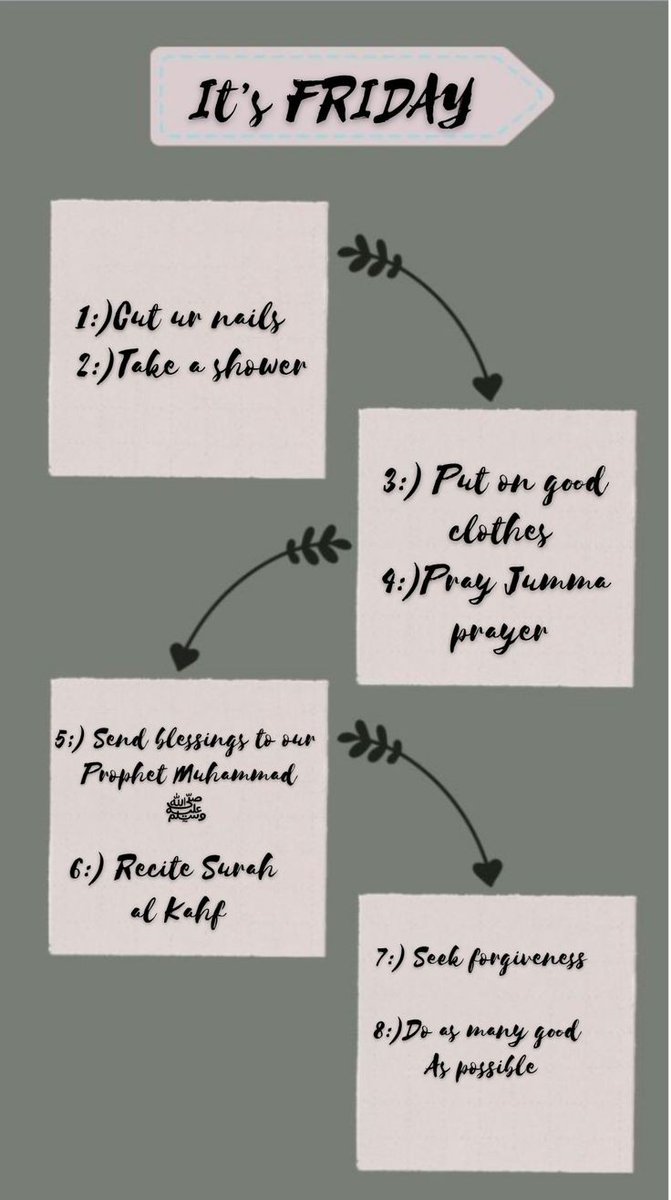 It's FRIDAY
1:)Cut ur nails
2:)Take a shower
3:) Put on good
clothes
4:)Pray Jumma
prayer
5:) Send blessings to our
Prophet Muhammad
ﷺ
6:) Recite Surah
al Kahf
7:) Seek forgiveness
8:)Do as many good
As possible